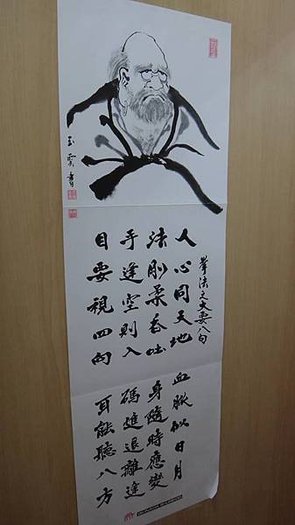 拳法之大要八句
人心同天地 血脈似日月
法剛柔吞吐 身隨時應變
手逢空則入 碼進退離逢
目要視四向 耳能聽八方